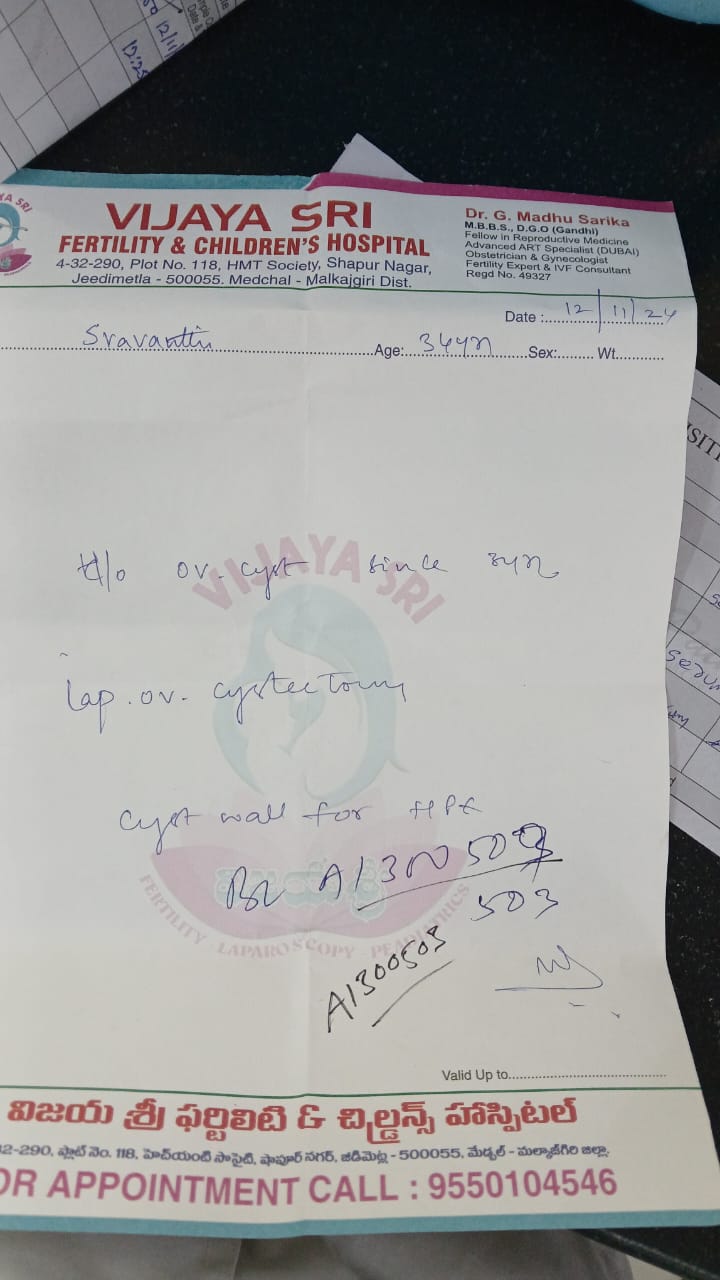 12/11
12:25
VIJAYA SRI
FERTILITY & CHILDREN'S HOSPITAL
4-32-290, Plot No. 118, HMT Society, Shapur Nagar,
Jeedimetla - 500055. Medchal - Malkajgiri Dist.
Dr. G. Madhu Sarika
M.B.B.S., D.G.O (Gandhi)
Fellow in Reproductive Medicine
Advanced ART Specialist (DUBAI)
Obstetrician & Gynecologist
Fertility Expert & IVF Consultant
Regd No. 49327
Date : 12/11/24
Sravanthi Age: 34yrs Sex: Wt.
H/o ov. cyst since 3yrs
VIJAYA SRI
Lap. ov. cystectomy
cyst wall for HPE
A1300509
503
A1300503
FERTILITY LAPAROSCOPY - PEADIATRICS
Valid Up to
విజయ శ్రీ ఫర్టిలిటి & చిల్డ్రన్స్ హాస్పిటల్
32-290, ప్లాట్ నెం. 118, హెచ్ఎంటి సొసైటి, షాపూర్ నగర్, జీడిమెట్ల - 500055, మేడ్చల్ - మల్కాజ్‌గిరి జిల్లా.
OR APPOINTMENT CALL : 9550104546